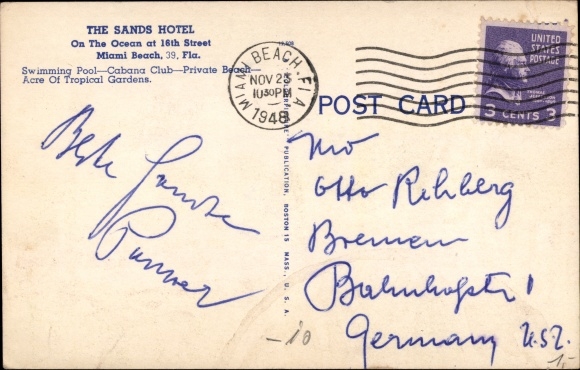 THE SANDS HOTEL
On The Ocean at 18th Street
Miami Beach, 39, Fla.
Swimming Pool—Cabana Club—Private Beach—
Acre Of Tropical Gardens.
MIAMI BEACH, FLA.
NOV 23
10 30 PM
1948
UNITED
STATES
POSTAGE
3 CENTS 3
POST CARD
PUBLICATION, BOSTON 15, MASS., U. S. A.
Beste
Otto Rehberg
Bremen
Bahnhofstr 1
Germany U.S.Z.
-10